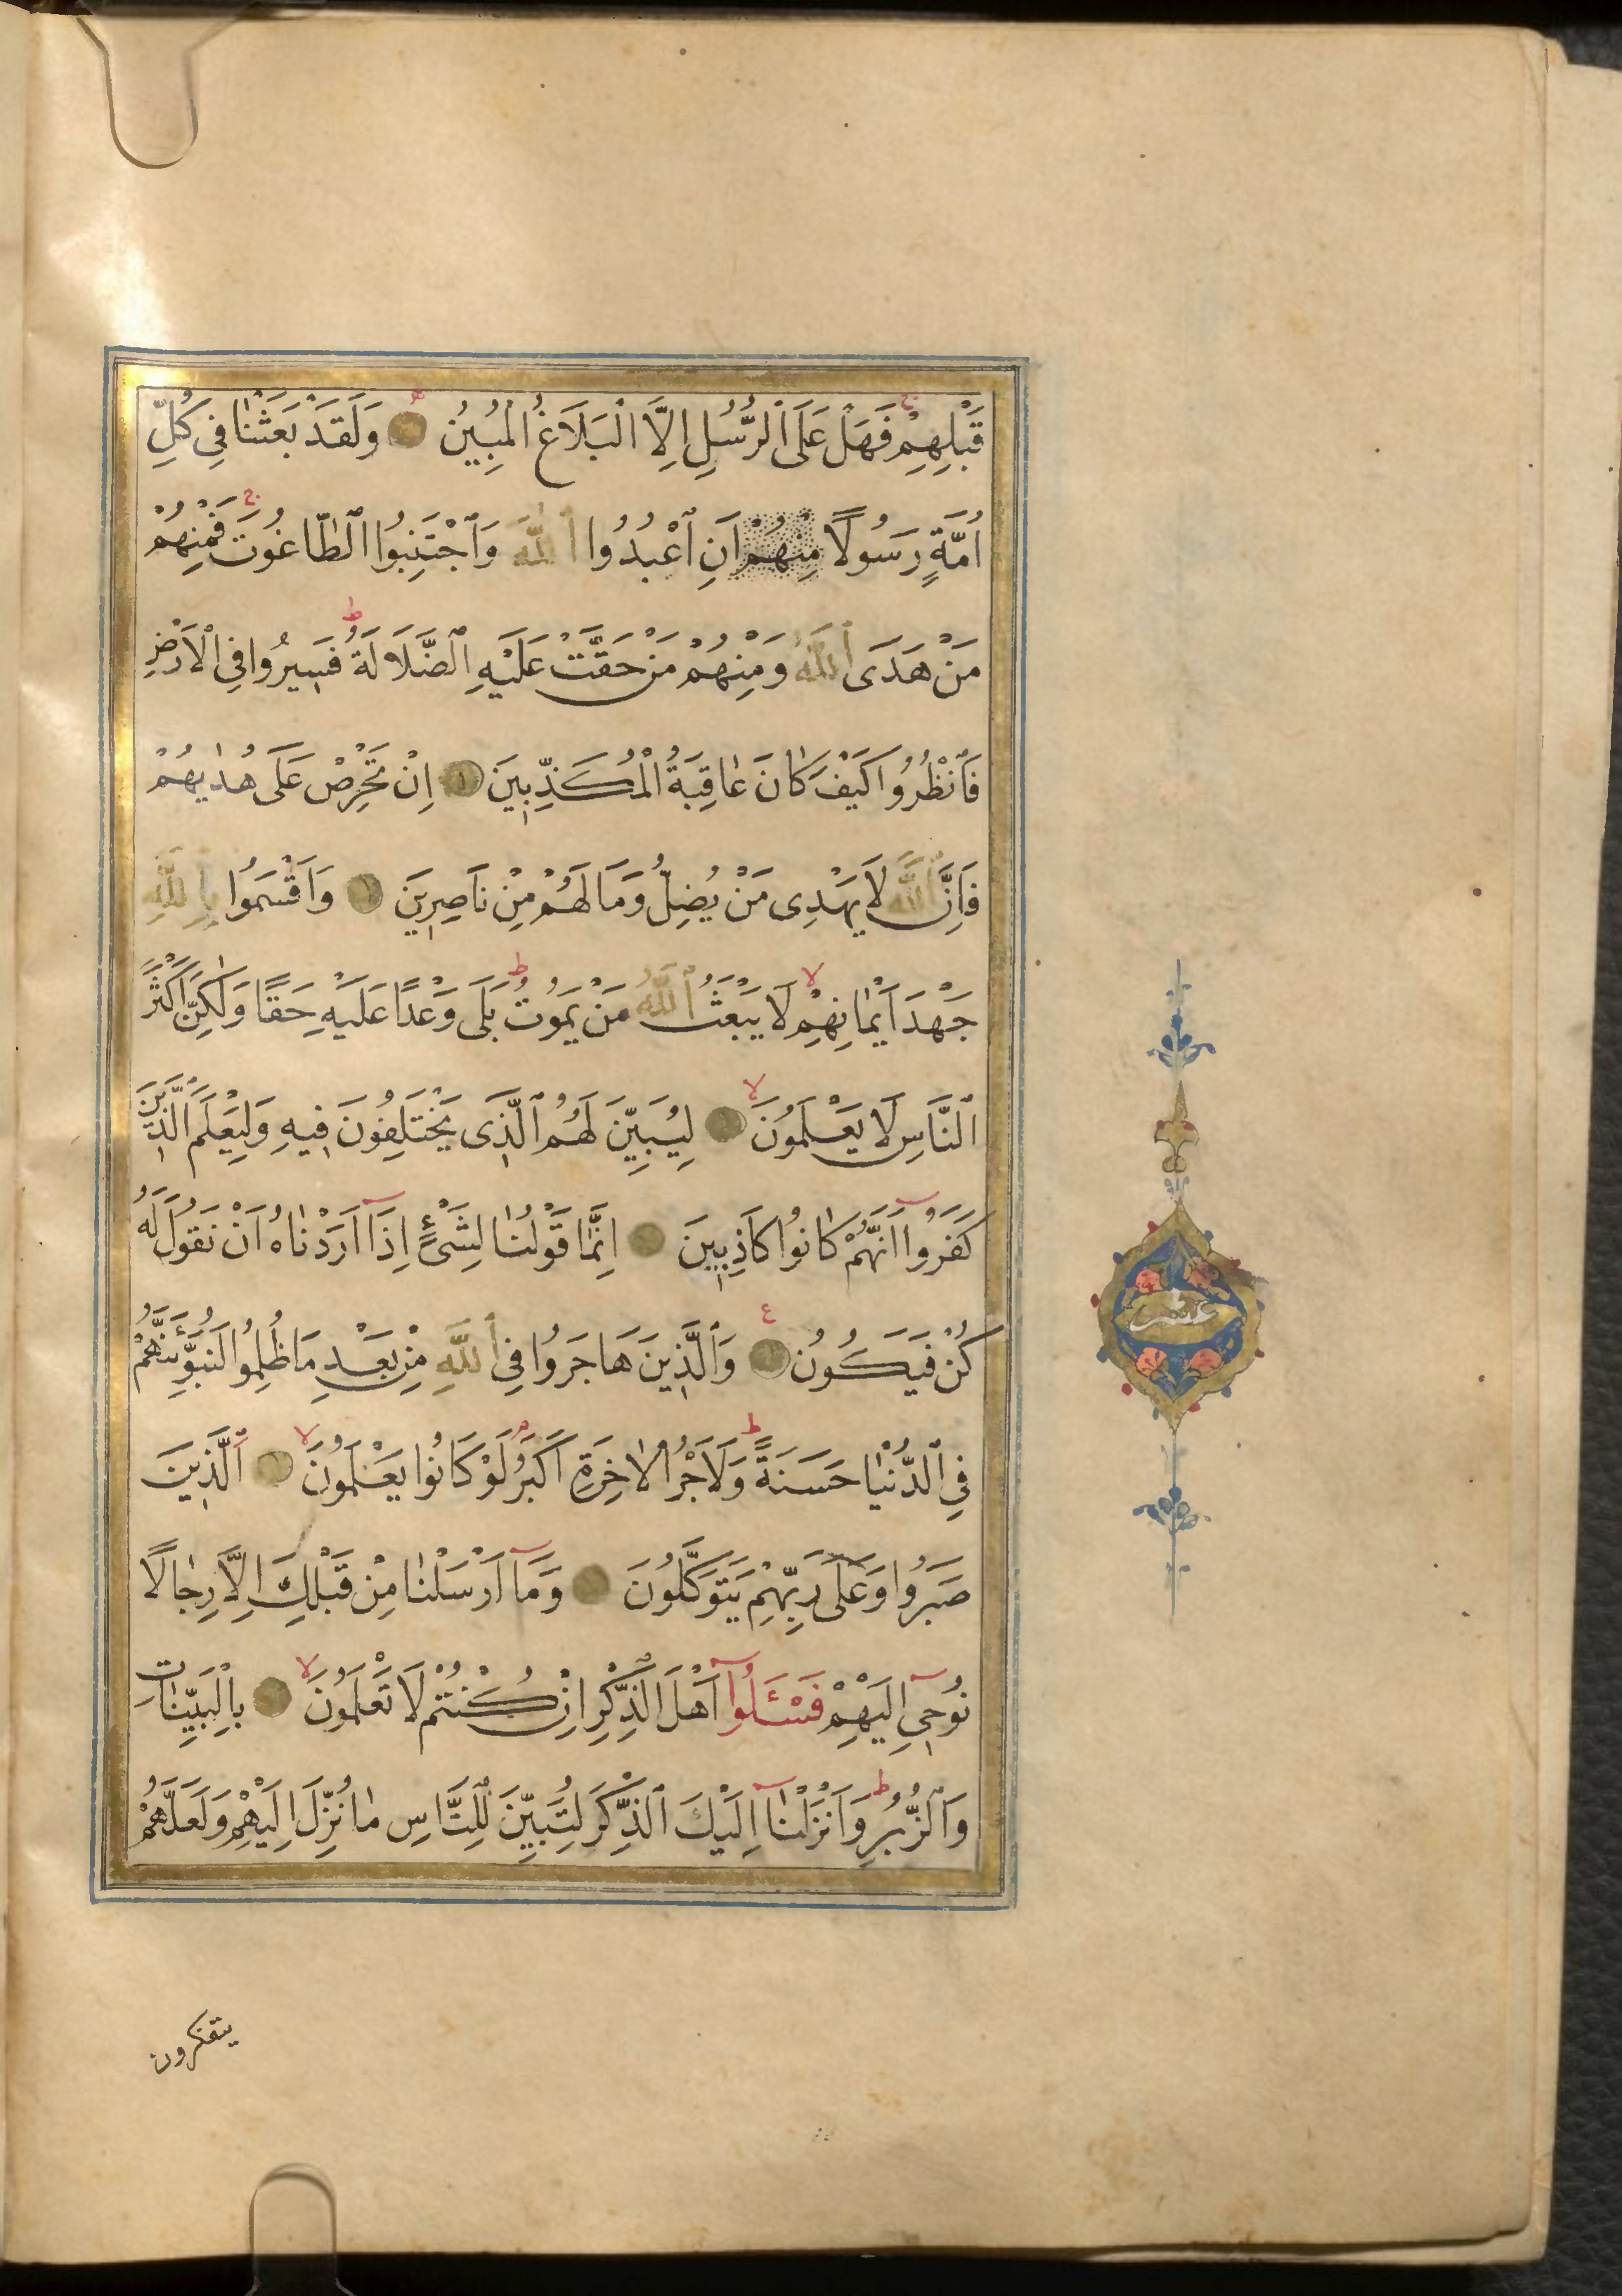 قَبْلِهِمْ فَهَلْ عَلَى ٱلرُّسُلِ اِلَّا ٱلْبَلَاغُ ٱلْمُبِينُ وَلَقَدْ بَعَثْنَا فِى كُلِّ
اُمَّةٍ رَسُولًا مِنْهُمْ اَنِ ٱعْبُدُوا ٱللّٰهَ وَٱجْتَنِبُوا ٱلطَّاغُوتَ فَمِنْهُمْ
مَنْ هَدَى ٱللّٰهُ وَمِنْهُمْ مَنْ حَقَّتْ عَلَيْهِ ٱلضَّلَالَةُ فَسِيرُوا فِى ٱلْاَرْضِ
فَٱنْظُرُوا كَيْفَ كَانَ عَاقِبَةُ ٱلْمُكَذِّبِينَ اِنْ تَحْرِصْ عَلَى هُدٰيهُمْ
فَاِنَّ ٱللّٰهَ لَا يَهْدِى مَنْ يُضِلُّ وَمَا لَهُمْ مِنْ نَاصِرِينَ وَاَقْسَمُوا بِٱللّٰهِ
جَهْدَ اَيْمَانِهِمْ لَا يَبْعَثُ ٱللّٰهُ مَنْ يَمُوتُ بَلَى وَعْدًا عَلَيْهِ حَقًّا وَلٰكِنَّ اَكْثَرَ
ٱلنَّاسِ لَا يَعْلَمُونَ لِيُبَيِّنَ لَهُمُ ٱلَّذِى يَخْتَلِفُونَ فِيهِ وَلِيَعْلَمَ ٱلَّذِينَ
كَفَرُوا اَنَّهُمْ كَانُوا كَاذِبِينَ اِنَّمَا قَوْلُنَا لِشَىْءٍ اِذَا اَرَدْنَاهُ اَنْ نَقُولَ لَهُ
كُنْ فَيَكُونُ وَٱلَّذِينَ هَاجَرُوا فِى ٱللّٰهِ مِنْ بَعْدِ مَا ظُلِمُوا لَنُبَوِّئَنَّهُمْ
عشر
فِى ٱلدُّنْيَا حَسَنَةً وَلَاَجْرُ ٱلْاٰخِرَةِ اَكْبَرُ لَوْ كَانُوا يَعْلَمُونَ ٱلَّذِينَ
صَبَرُوا وَعَلَى رَبِّهِمْ يَتَوَكَّلُونَ وَمَا اَرْسَلْنَا مِنْ قَبْلِكَ اِلَّا رِجَالًا
نُوحِى اِلَيْهِمْ فَسْـَٔلُوا اَهْلَ ٱلذِّكْرِ اِنْ كُنْتُمْ لَا تَعْلَمُونَ بِالْبَيِّنَاتِ
وَٱلزُّبُرِ وَاَنْزَلْنَا اِلَيْكَ ٱلذِّكْرَ لِتُبَيِّنَ لِلنَّاسِ مَا نُزِّلَ اِلَيْهِمْ وَلَعَلَّهُمْ
يتفكرون